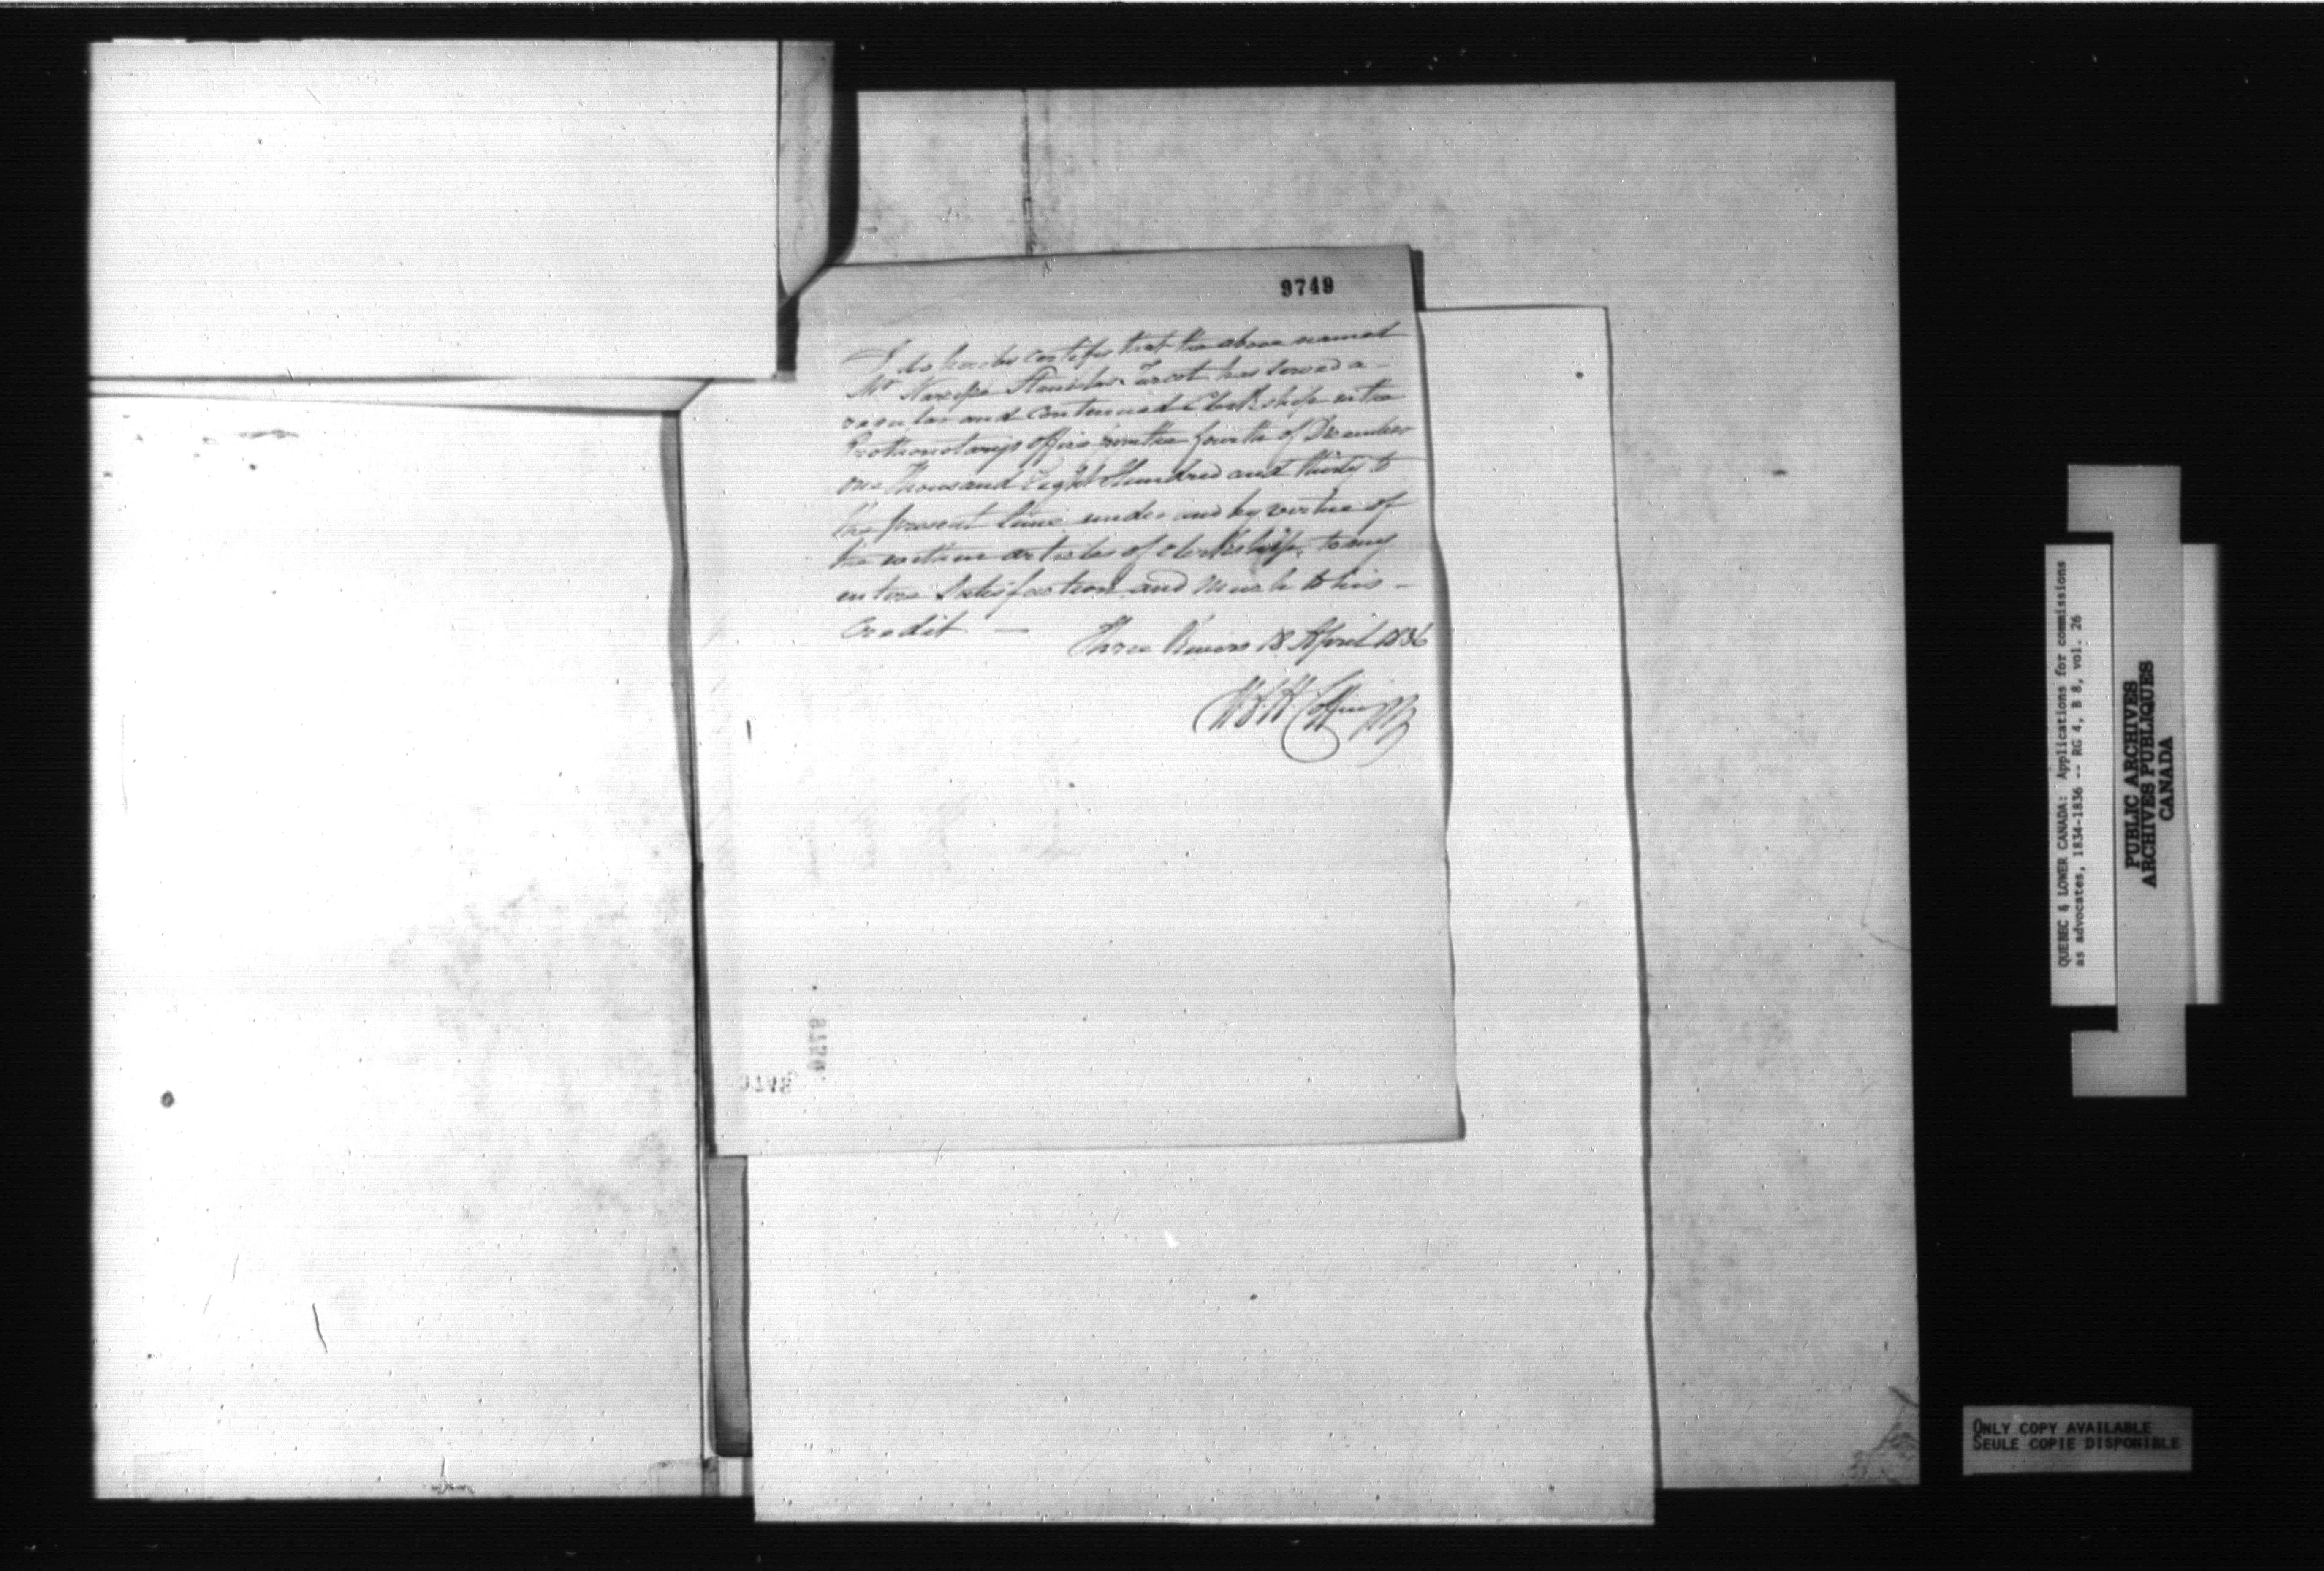 9749
I do hereby certify that the above named
Mr Narcisse Stanislas Turcot has served a -
regular and continued Clerkship in the
Prothonotarys office from the fourth of December
one Thousand Eight Hundred and thirty to
the present time under and by virtue of
the within articles of clerkship, to my
entire Satisfaction and much to his -
Credit -
Three Rivers 18 April 1836
9750
QUEBEC & LOWER CANADA: Applications for commissions
as advocates, 1834-1836 -- RG 4, B 8, vol. 26
PUBLIC ARCHIVES
ARCHIVES PUBLIQUES
CANADA
ONLY COPY AVAILABLE
SEULE COPIE DISPONIBLE